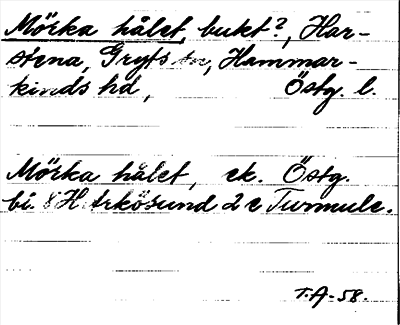 Mörka hålet, bukt?, Har-
stena, Gryts sn, Hammar-
kinds hd, Östg. l.
Mörka hålet, ek. Östg.
bi. 8 H Arkösund 2 c Turmulc.
T.A-58.